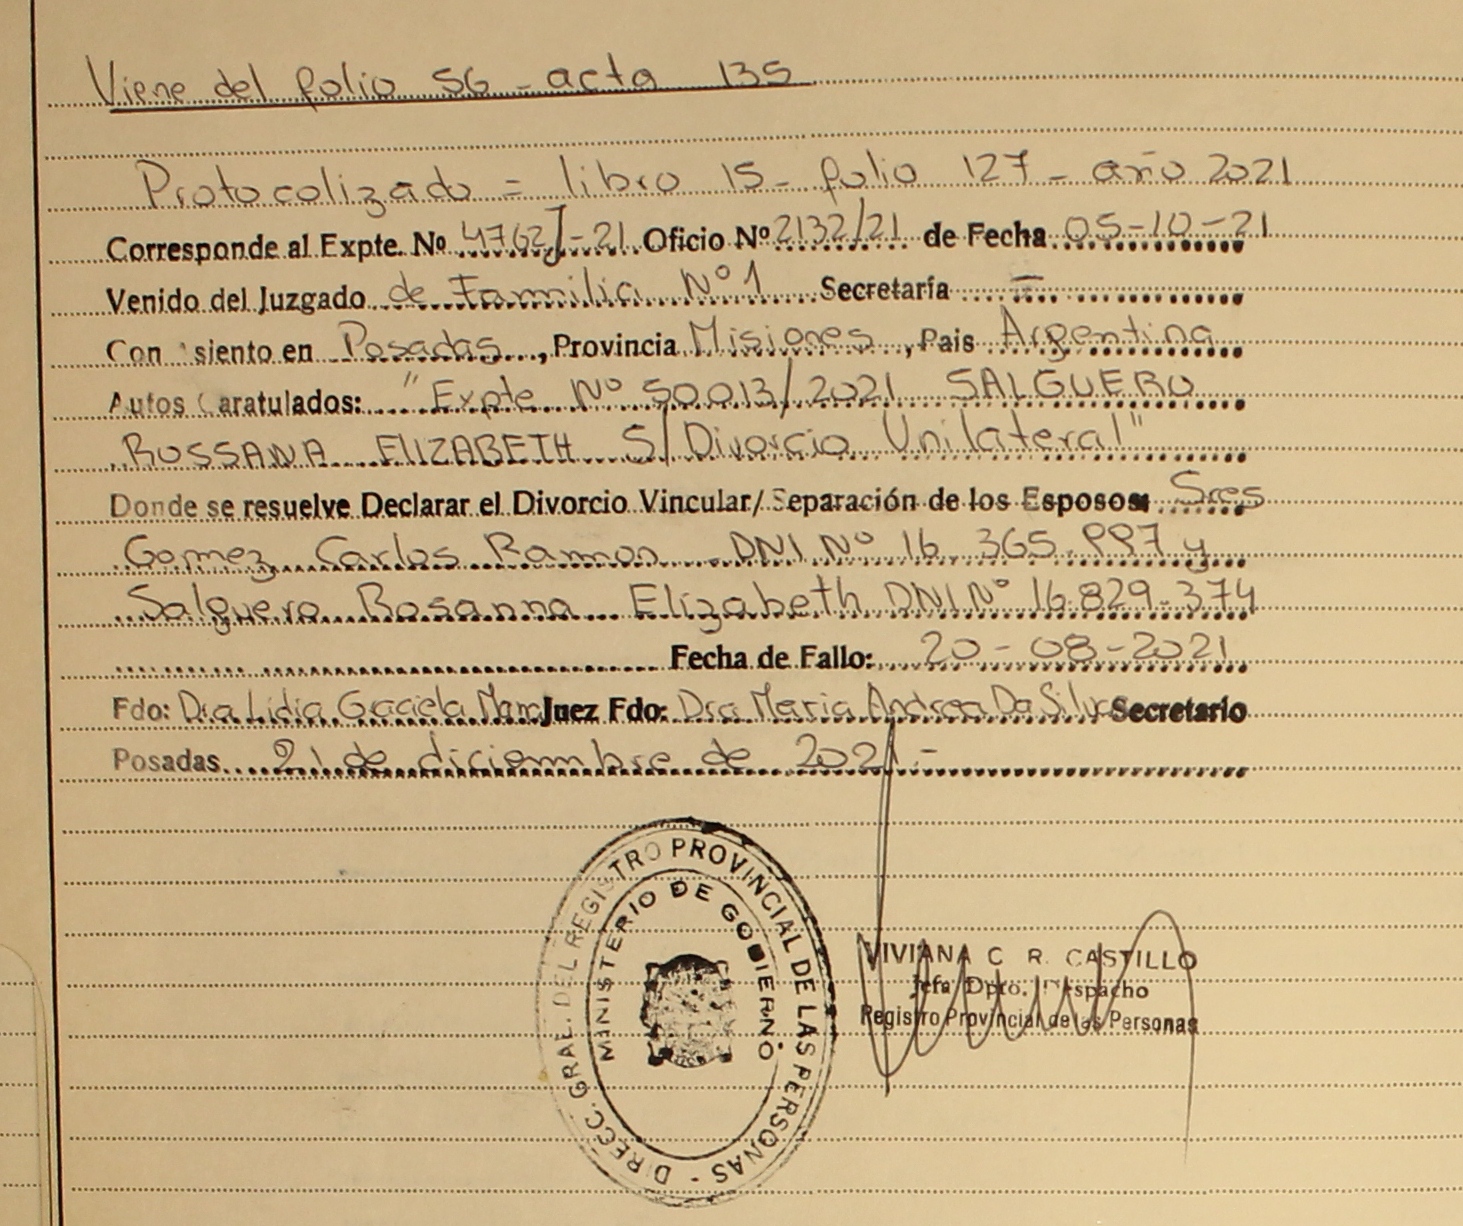 Viene del folio 56 - acta 135
Protocolizado = libro 15 - folio 127 - año 2021
Corresponde al Expte. Nº 4762J-21 Oficio Nº 2132/21 de Fecha 05-10-21
Venido del Juzgado de Familia Nº 1 Secretaría I
Con asiento en Posadas, Provincia Misiones, Pais Argentina
Autos Caratulados: "Expte Nº 50013/2021 SALGUERO
ROSSANA ELIZABETH S/Divorcio Unilateral"
Donde se resuelve Declarar el Divorcio Vincular/Separación de los Esposos: Sres
Gomez Carlos Ramon DNI Nº 16.365.997 y
Salguero Rosanna Elizabeth DNI Nº 16.829.374
Fecha de Fallo: 20-08-2021
Fdo: Dra Lidia Graciela Juez Fdo: Dra Maria Andrea Da Silva Secretario
Posadas 21 de diciembre de 2021-
DIRECC. GRAL. DEL REGISTRO PROVINCIAL DE LAS PERSONAS -
MINISTERIO DE GOBIERNO
VIVIANA C. R. CASTILLO
Jefa Dpto. Despacho
Registro Provincial de las Personas